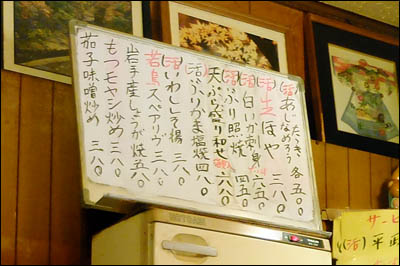 (活)あじ たたき なめろう 各五八〇
(活)生ほや 三八〇
(活)白いか刺身 六五〇
(活)ぶり照焼 四五〇
天ぷら盛り和せ 六八〇
(活)ぶりかま塩焼 四八〇
(活)いわししそ揚 三八〇
若鳥スペアリブ 三八〇
山岩手産しょうが焼 五八〇
もつモヤシ炒め 三八〇
茄子味噌炒め 三八〇
HOTCABI
サービ
(活)平政